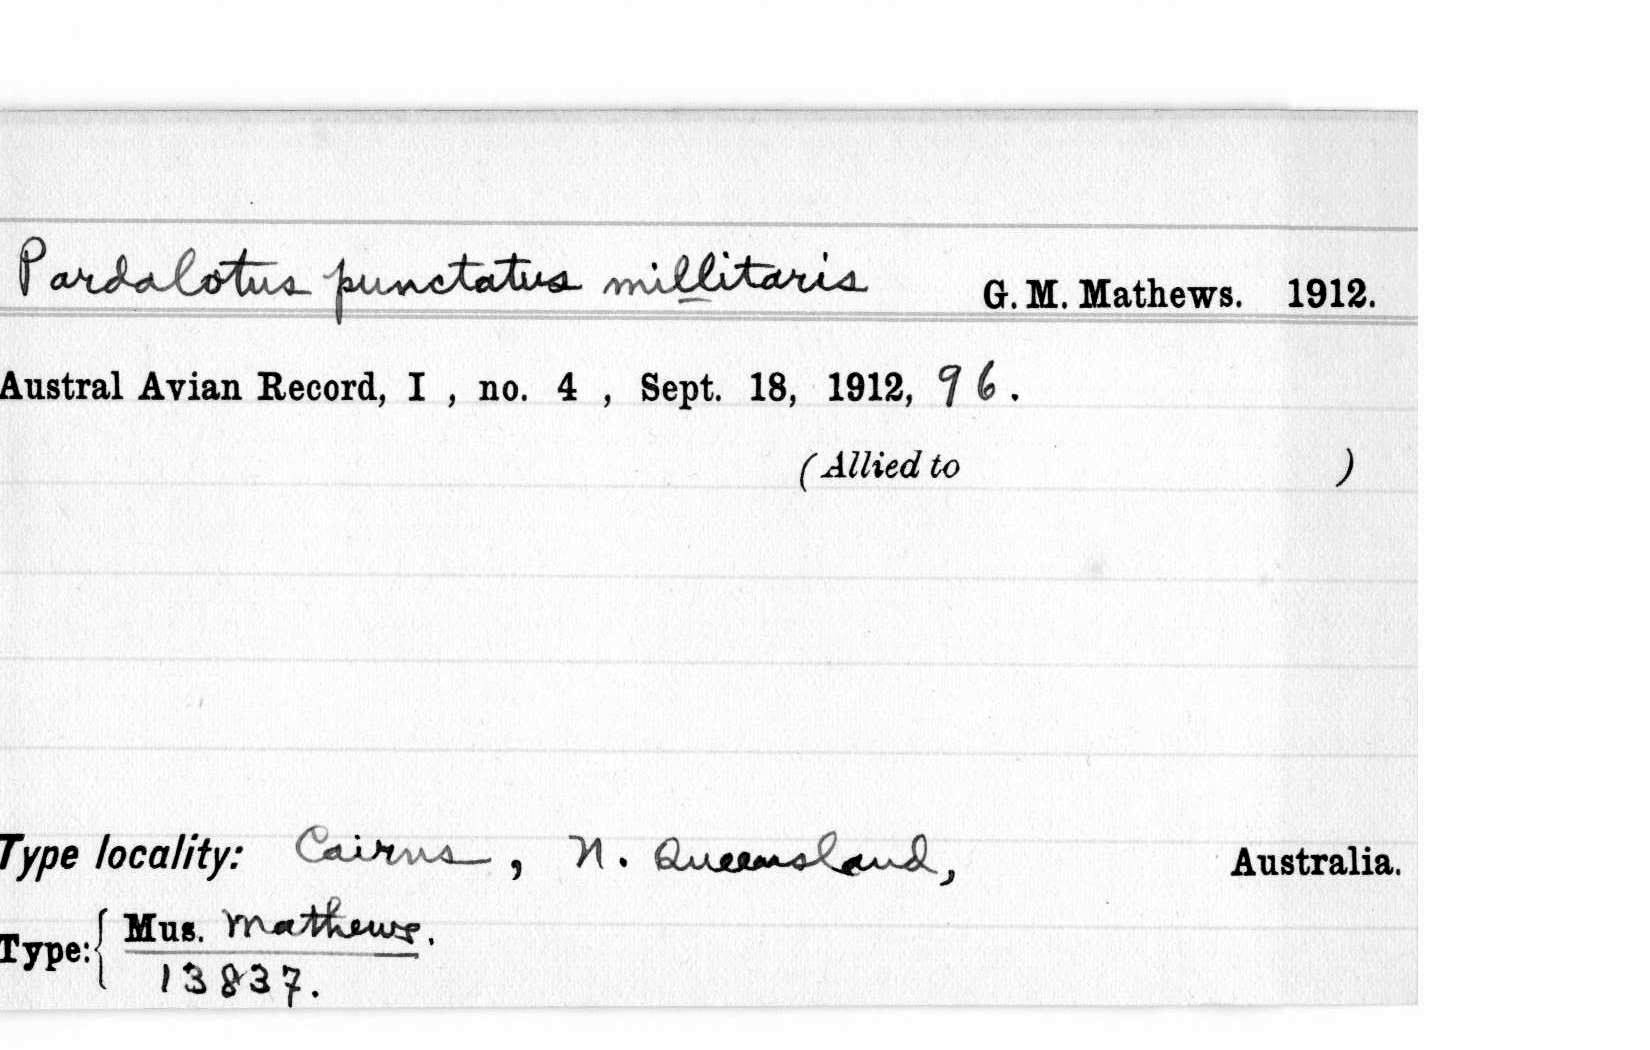 Pardalotus punctatus millitaris G. M. Mathews. 1912.
Austral Avian Record, I , no. 4 , Sept. 18, 1912, 96.
(Allied to )
Type locality: Cairns, N. Queensland, Australia.
Type: { Mus. Mathews.
13837.